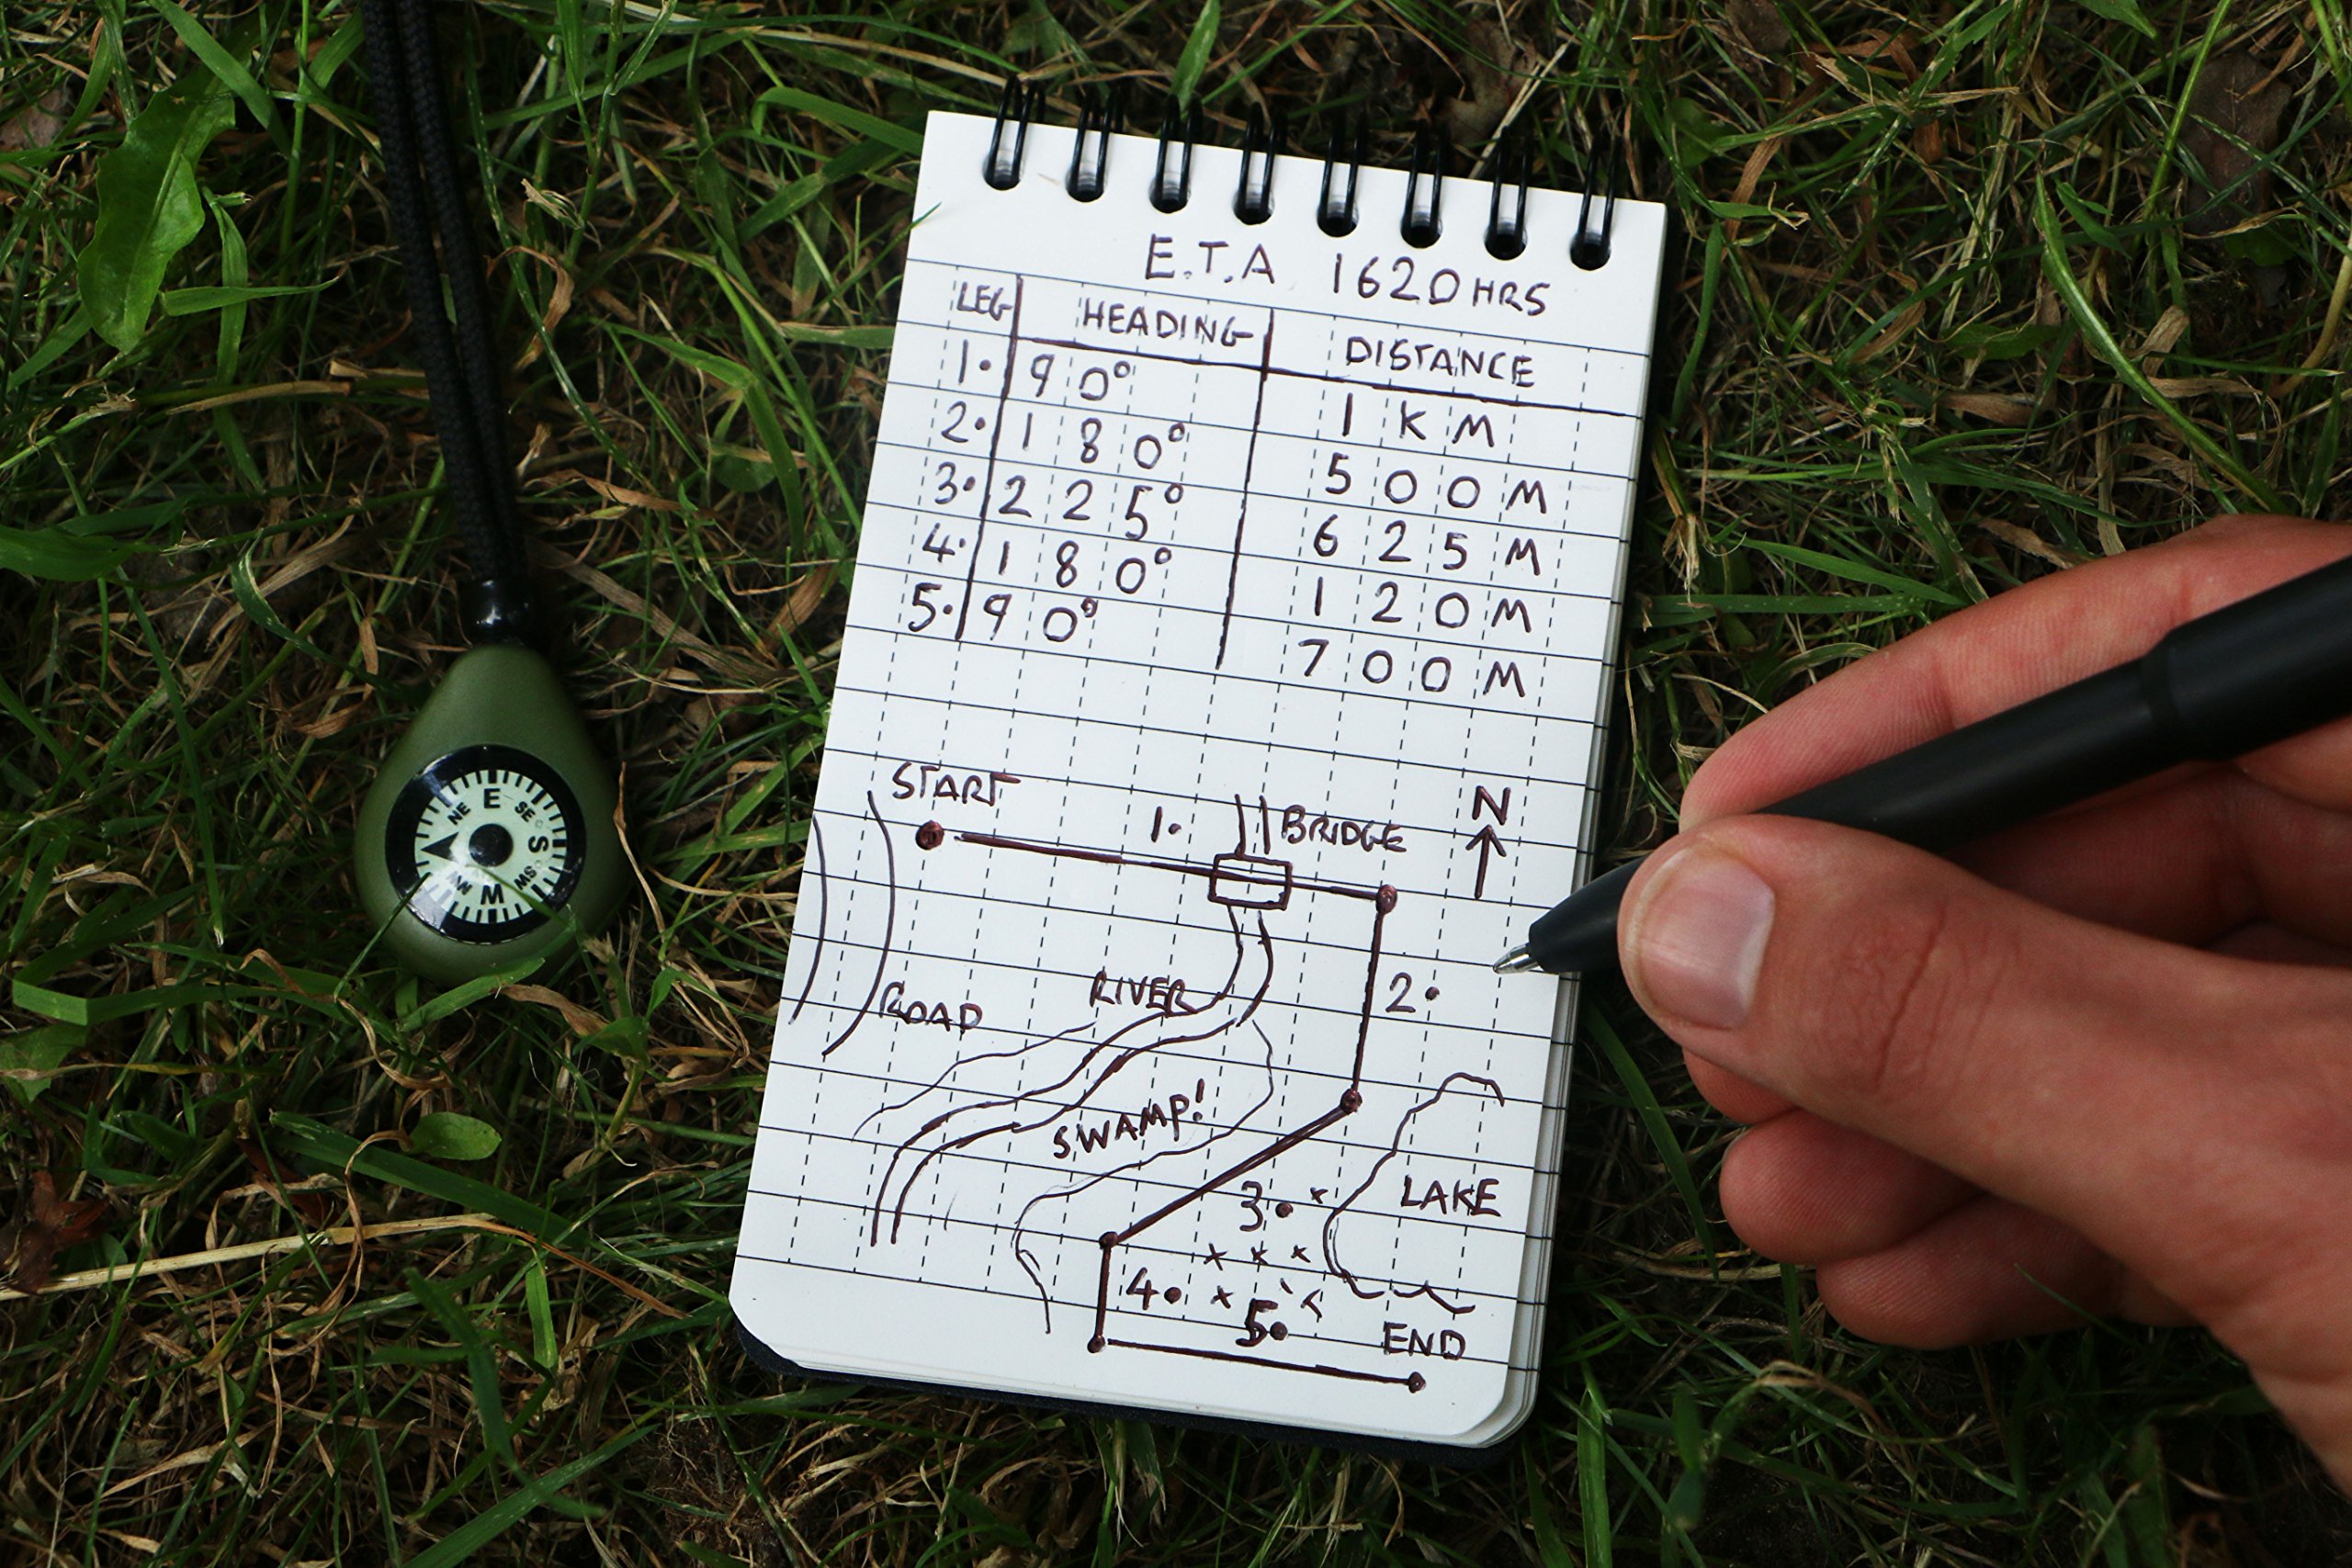 E.T.A 1620HRS
LEG HEADING DISTANCE
1. 90° 1 KM
2. 180° 500M
3. 225° 625M
4. 180° 120M
5. 90° 700M
START
1. BRIDGE N
2.
RIVER
ROAD
SWAMP!
3. LAKE
4. 5.
END
E
NE SE
S
NW SW
W